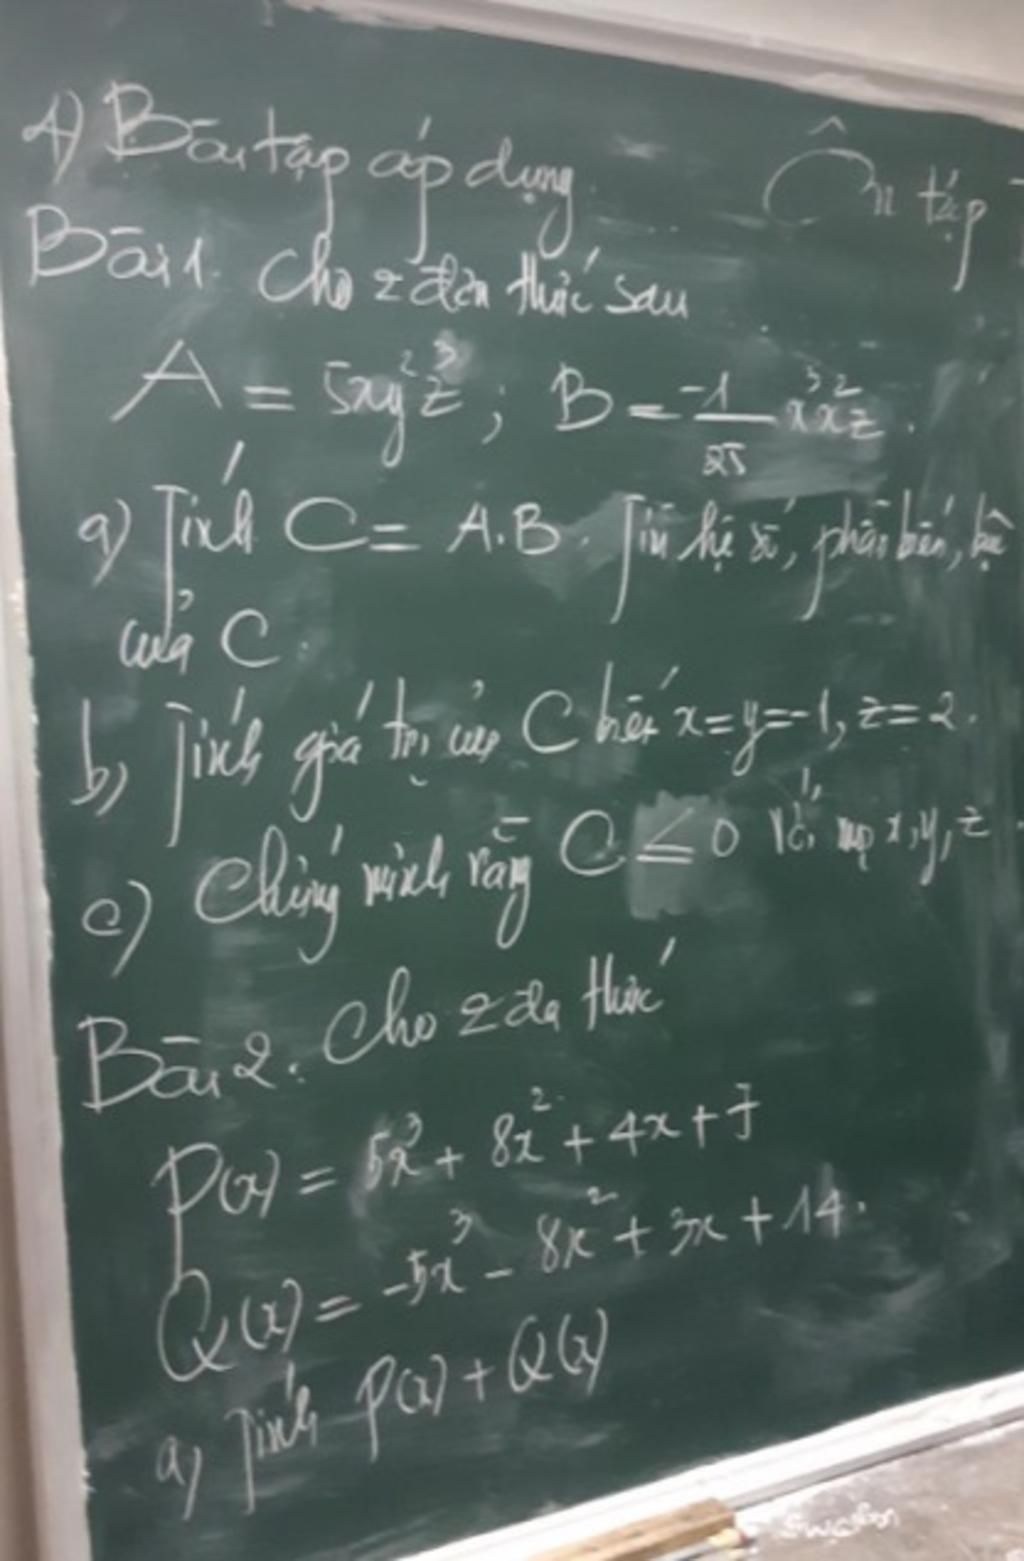 4) Bài tập áp dụng
Ôn tập
Bài 1. Cho 2 đơn thức sau
A = 5xy²z³ ; B = -1/25 x³x²z.
a) Tính C = A.B. Tìm hệ số, phần biến, bậ
của C.
b) Tính giá trị của C biết x=y=-1, z=2.
c) Chứng minh rằng C ≤ 0 với mọi x,y,z.
Bài 2. Cho 2 đa thức
P(x) = 5x³ + 8x² + 4x + 7
Q(x) = -5x³ - 8x² + 3x + 14.
a) Tính P(x) + Q(x)